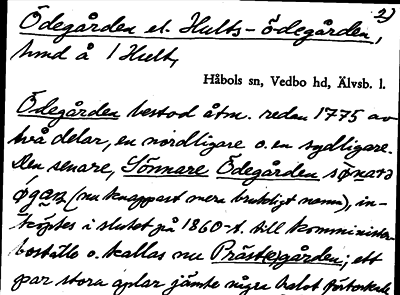 2)
Ödegården el. Hults-ödegården,
hmd å 1 Hult,
Håbols sn, Vedbo hd, Älvsb. l.
Ödegården bestod åtm. redan 1775 av
två delar, en nordligare o. en sydligare.
Den senare, Sönnare Ödegården
(nu knappast mera brukligt namn), in-
köptes i slutet på 1860-t. till komminister-
boställe o. kallas nu Präst(e)gården; ett
par stora aplar jämte några halvt förtorkade